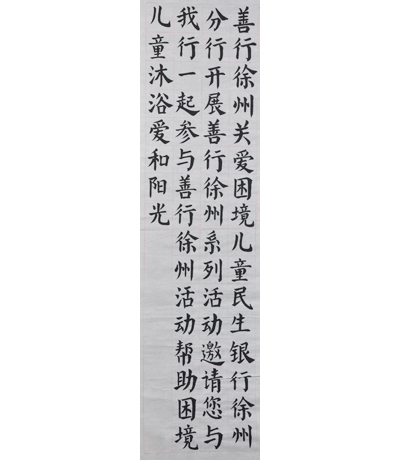 善行徐州关爱困境儿童民生银行徐州
分行开展善行徐州系列活动邀请您与
我行一起参与善行徐州活动帮助困境
儿童沐浴爱和阳光